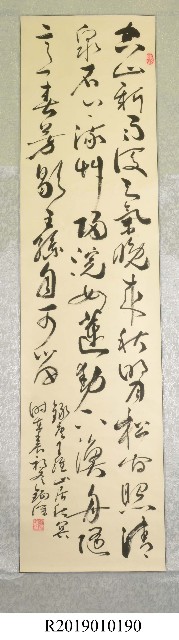 空山新雨後天氣晚來秋明月松間照清
泉石上流竹喧歸浣女蓮動下漁舟隨
意春芳歇王孫自可留
錄唐王維山居秋暝
R2019010190